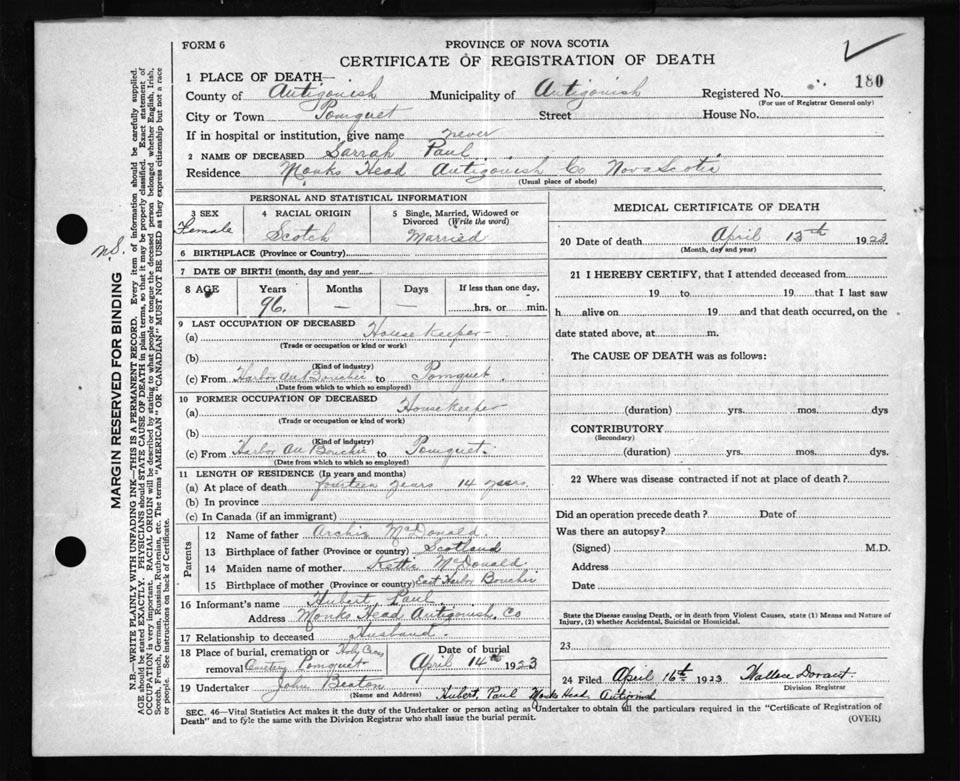 FORM 6
PROVINCE OF NOVA SCOTIA
CERTIFICATE OF REGISTRATION OF DEATH
180
1 PLACE OF DEATH—
County of Antigonish Municipality of Antigonish Registered No.
(For use of Registrar General only)
City or Town Pomquet Street House No.
If in hospital or institution, give name never
2 NAME OF DECEASED Sarrah Paul
Residence Monks Head Antigonish Co Nova Scotia
(Usual place of abode)
N.S.
MARGIN RESERVED FOR BINDING
N.B.—WRITE PLAINLY WITH UNFADING INK—THIS IS A PERMANENT RECORD. Every item of information should be carefully supplied.
AGE should be stated EXACTLY. PHYSICIANS should STATE CAUSE OF DEATH in plain terms, so that it may be properly classified. Exact statement of
OCCUPATION is very important. RACIAL ORIGIN will be described by stating to what people or tongue the deceased person belonged whether English, Irish,
Scotch, French, German, Russian, Ruthenian, etc. The terms "AMERICAN" OR "CANADIAN" MUST NOT BE USED as they express citizenship but not a race
or people. See instructions on back of Certificate.
PERSONAL AND STATISTICAL INFORMATION
3 SEX
Female
4 RACIAL ORIGIN
Scotch
5 Single, Married, Widowed or
Divorced (Write the word)
Married
6 BIRTHPLACE (Province or Country)
7 DATE OF BIRTH (month, day and year
8 AGE
Years
96.
Months
—
Days
—
If less than one day,
hrs. or min.
9 LAST OCCUPATION OF DECEASED
(a) House Keeper
(Trade or occupation or kind or work)
(b)
(Kind of industry)
(c) From Harbor Au Bouchie to Pomquet.
(Date from which to which so employed)
10 FORMER OCCUPATION OF DECEASED
(a) Housekeeper
(Trade or occupation or kind of work)
(b)
(Kind of industry)
(c) From Harbor Au Bouchie to Pomquet.
(Date from which to which so employed)
11 LENGTH OF RESIDENCE (In years and months)
(a) At place of death fourteen years 14 years.
(b) In province
(c) In Canada (if an immigrant)
Parents
12 Name of father Archie McDonald.
13 Birthplace of father (Province or country) Scotland
14 Maiden name of mother Kettie McDonald
15 Birthplace of mother (Province or country) East Harbor Bouchie
16 Informant's name Hubert Paul
Address Monks Head Antigonish. Co
17 Relationship to deceased Husband.
18 Place of burial, cremation or Holy Cross
removal Pomquet
Date of burial
April 14th 1923
19 Undertaker John Beaton
(Name and Address) Hubert. Paul Monks Head, Antigonish
MEDICAL CERTIFICATE OF DEATH
20 Date of death April 13th 1923
(Month, day and year)
21 I HEREBY CERTIFY, that I attended deceased from
19 to 19 that I last saw
h alive on 19 and that death occurred, on the
date stated above, at m.
The CAUSE OF DEATH was as follows:
(duration) yrs. mos. dys
CONTRIBUTORY
(Secondary)
(duration) yrs. mos. dys.
22 Where was disease contracted if not at place of death?
Did an operation precede death? Date of
Was there an autopsy?
(Signed) M.D.
Address
Date
State the Disease causing Death, or in death from Violent Causes, state (1) Means and Nature of
Injury, (2) whether Accidental, Suicidal or Homicidal.
23
24 Filed April 16th 1923
Division Registrar
SEC. 46—Vital Statistics Act makes it the duty of the Undertaker or person acting as Undertaker to obtain all the particulars required in the "Certificate of Registration of
Death" and to fyle the same with the Division Registrar who shall issue the burial permit.
(OVER)